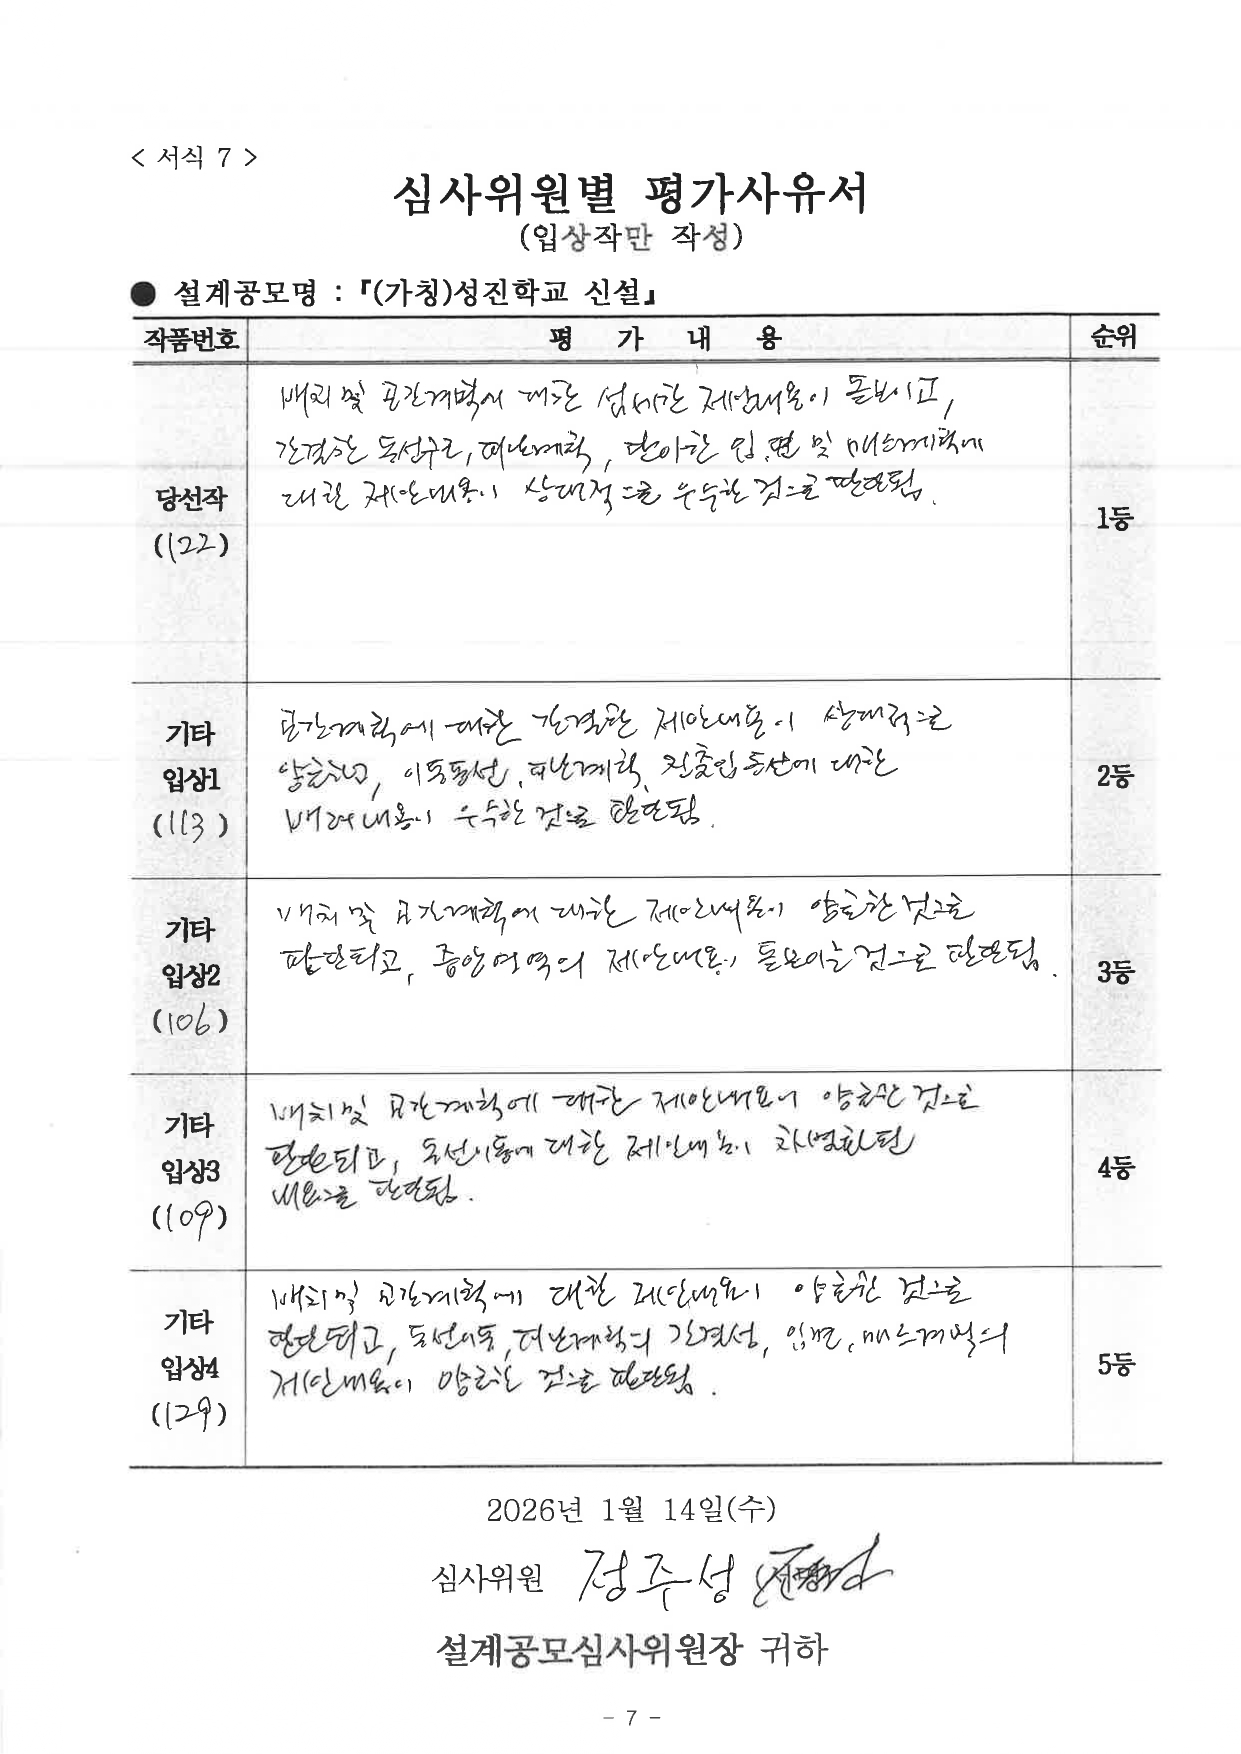 < 서식 7 >
심사위원별 평가사유서
(입상작만 작성)
● 설계공모명 : 『(가칭)성진학교 신설』
작품번호 평 가 내 용 순위
당선작
(122)
배치 및 공간계획에 대한 섬세한 제안내용이 돋보이고,
간결한 동선구리, 피난계획, 단아한 입면 및 매스계획에
대한 제안내용이 상대적으로 우수한 것으로 판단됨.
1등
기타
입상1
(113)
공간계획에 대한 간결한 제안내용이 상대적으로
양호하고, 이동동선, 피난계획, 진출입동선에 대한
배려내용이 우수한 것으로 판단됨.
2등
기타
입상2
(106)
배치 및 공간계획에 대한 제안내용이 양호한 것으로
판단되고, 중앙영역의 제안내용이 돋보이는 것으로 판단됨.
3등
기타
입상3
(109)
배치 및 공간계획에 대한 제안내용이 양호한 것으로
판단되고, 동선이동에 대한 제안내용이 차별화된
내용으로 판단됨.
4등
기타
입상4
(129)
배치 및 공간계획에 대한 제안내용이 양호한 것으로
판단되고, 동선이동, 피난계획의 간결성, 입면, 매스계획의
제안내용이 양호한 것으로 판단됨.
5등
2026년 1월 14일(수)
심사위원 정주성
설계공모심사위원장 귀하
- 7 -